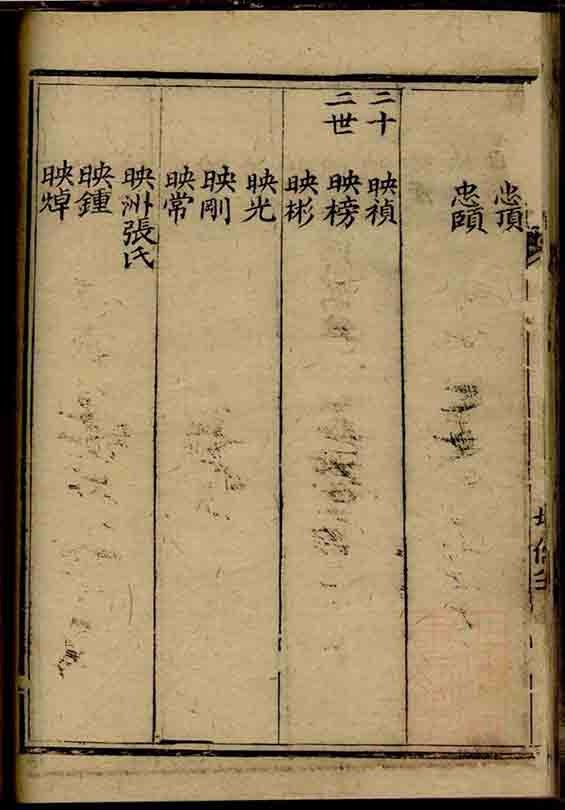 忠頂
忠頤
二十
二世
映禎
映榜
映彬
映光
映剛
映常
映洲張氏
映鍾
映焯